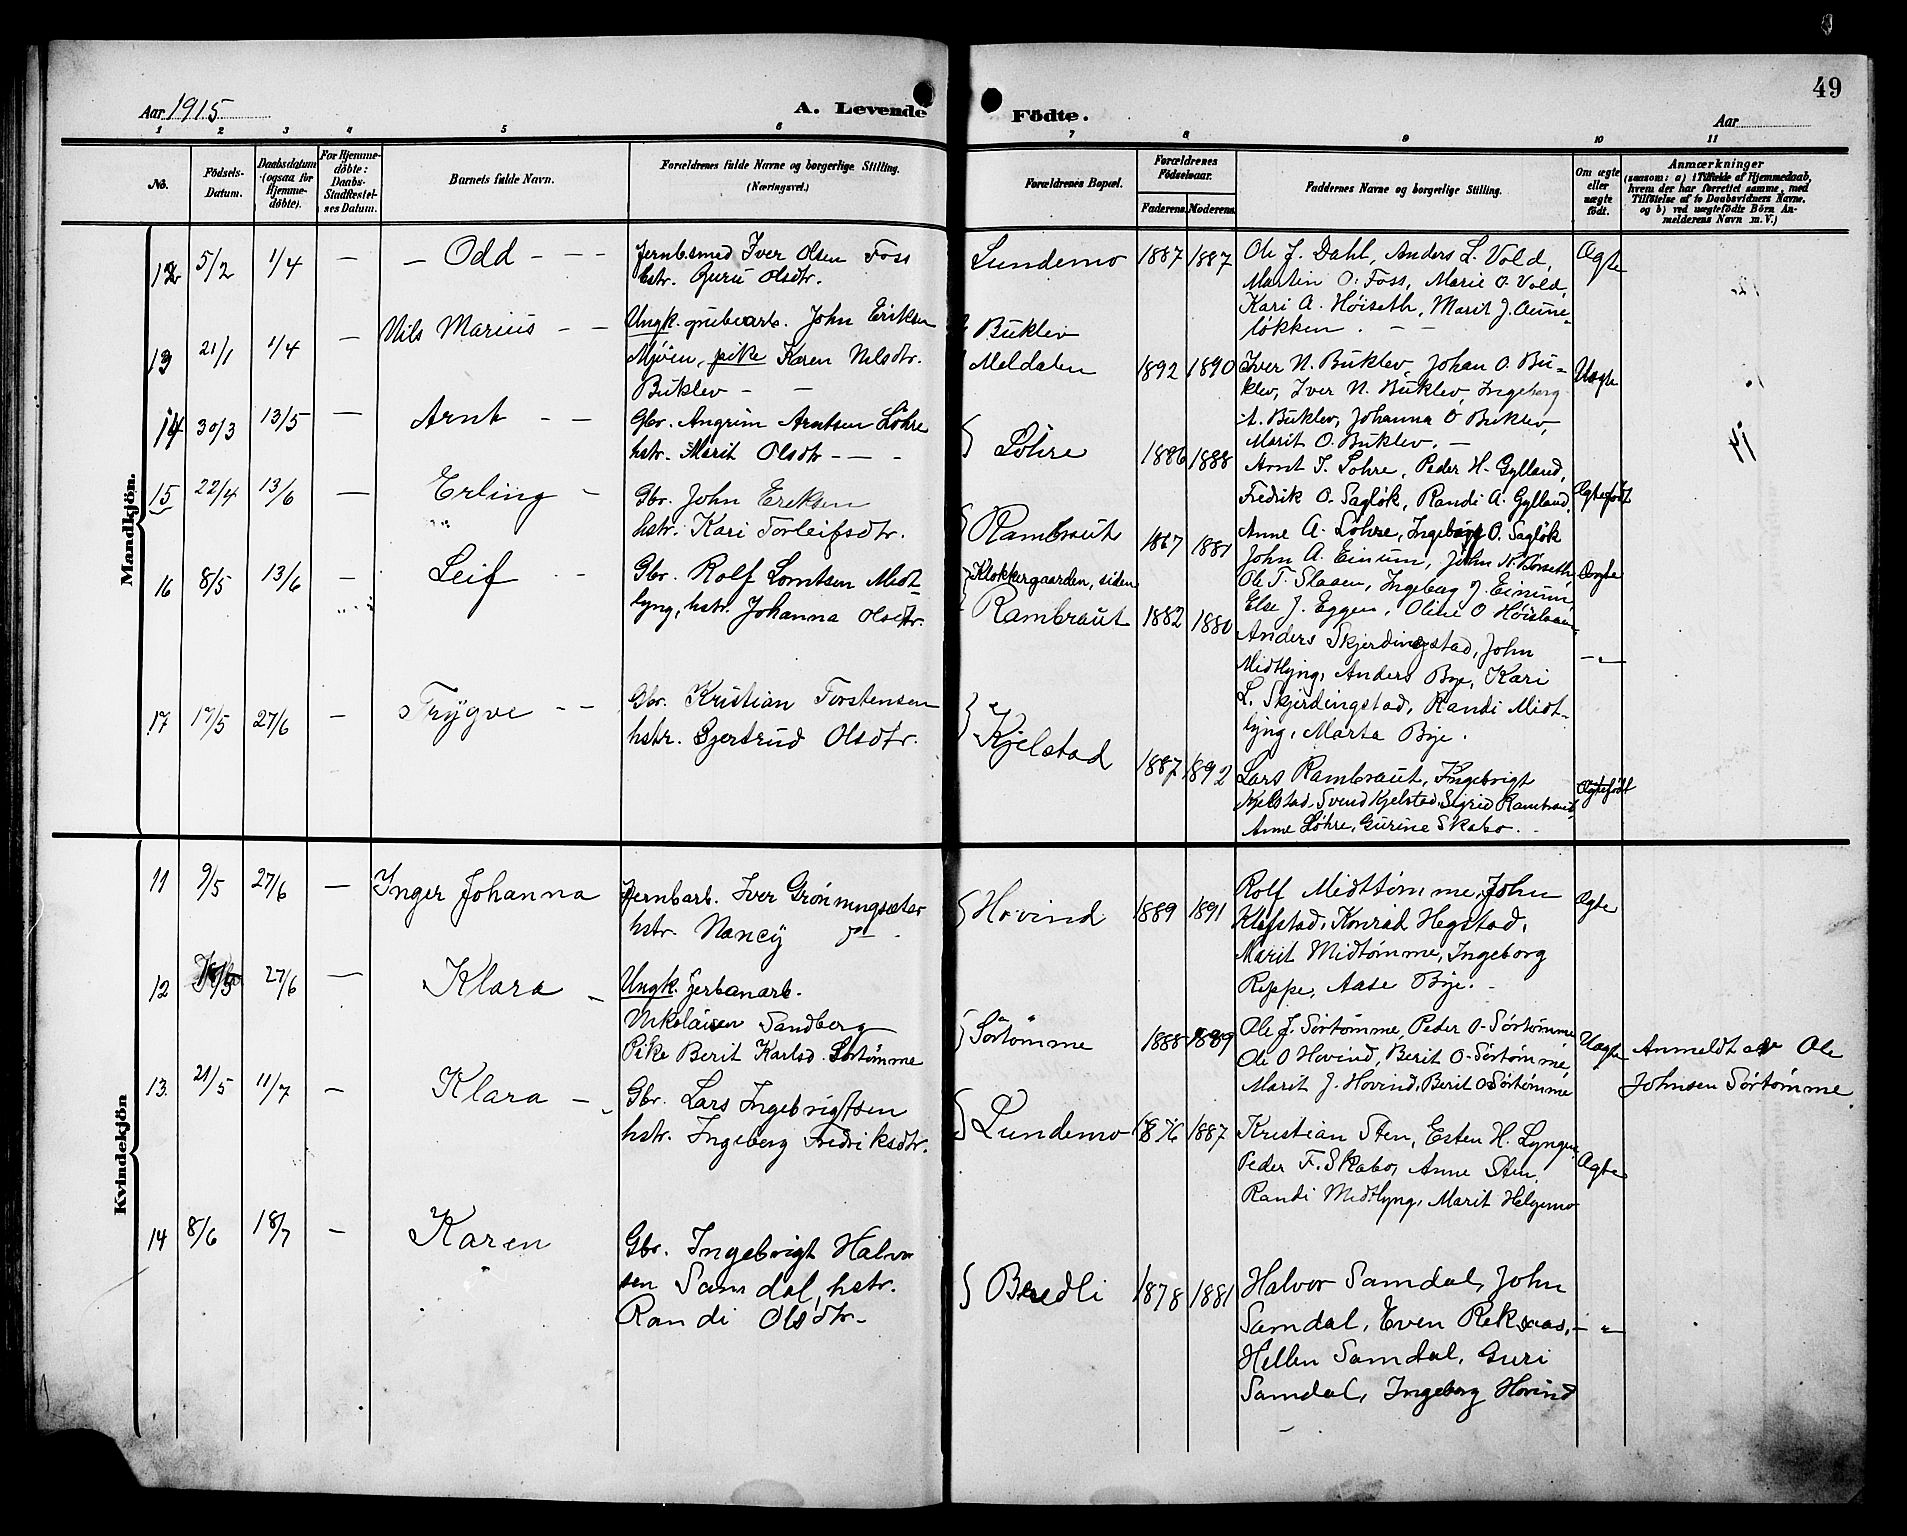 49
Aar 1915
A. Levende Födte.
Aar
1 2 3 4 5 6 7 8 9 10 11
No.
Födsels-Datum.
Daabsdatum (ogsaa for Hjemme-døbte).
For Hjemme-døbte: Daabs-Stadfestel-ses Datum.
Barnets fulde Navn.
Forældrenes fulde Navne og borgerlige Stilling.
(Næringsvei.)
Forældrenes Bopæl.
Forældrenes Födselsaar.
Faderens. Moderens.
Faddernes Navne og borgerlige Stilling.
Om ægte eller uægte födt.
Anmærkninger
(saasom: a) i Tilfælde af Hjemmedaab,
hvem der har forrettet samme, med
Tilföielse af to Daabsvidners Navne.
og b) ved uægtefödte Börn An-
melderens Navn m. V.)
Mandkjön.
12 5/2 1/4 — — Odd — — —
Jernbsmed Iver Olsen Foss
hstr. Guru Olsdtr.
Lundemo 1887 1887
Ole J. Dahl, Anders L. Vold,
Martin O. Foss, Marie O. Vold,
Kari A. Höiseth, Marit J. Aune-
løkken. — —
Ægte
13 21/1 1/4 — Nils Marius — —
Ungk. grubearb. John Eriksen
Mjöen, pike Karen Nilsdtr.
Buklev — —
Buklev
Meldalen 1892 1890
Iver N. Buklev, Johan O. Bu-
klev, Iver N. Buklev, Ingeborg
A. Buklev, Johanna O Buklev,
Marit O. Buklev. —
Uægte
14 30/3 13/5 — Arnt — —
Gbr. Angrim Arntsen Löhre
hstr. Marit Olsdtr — — -
Löhre 1886 1888
Arnt I. Lohre, Peder H. Gylland,
Fredrik O. Sagløk, Randi A. Gylland,
Anne A. Löhre, Ingeborg O. Sagløk
Ægtefödt
15 22/4 13/6 — Erling —
Gbr. John Eriksen
hstr. Kari Torleifsdtr.
Rambraut 1867 1881
John A. Einum, John N. Börseth,
Ole T. Slaaen, Ingebog J. Einum,
Else J. Eggen, Oline O
Ægte
16 8/5 13/6 — Leif — -
Gbr. Rolf Lorntsen Midt-
lyng, hstr. Johanna Olsdtr.
Klokkergaarden, siden
Rambraut 1882 1880
Anders Skjerdingstad, John
Midtlyng, Anders Bye, Kari
L. Skjerdingstad, Randi Midt-
lyng, Marta Bye.
—"—
17 17/5 27/6 — Trygve — —
Gbr. Kristian Torstensen
hstr. Gjertrud Olsdtr.
Kjelstad 1887 1892
Lars Rambraut, Ingebrigt
Kjelstad, Svend Kjelstad, Sigrid Rambraut,
Anne Løhre, Gurine Skabo.
Ægtefödt
Kvindekjön
11 9/5 27/6 — Inger Johanna
Jernbarb. Iver Grönningsæter
hstr. Nancy do -
Hovind 1889 1891
Rolf Midttömme, John
Klefstad, Konrad Hegstad,
Marit Midtömme, Ingeborg
Reppe, Aase Bye. -
Ægte
12 27/6 — Klara —
Ungk. jerbanarb.
Nikolaisen Sandberg
Pike Berit Karlsd. Sörtömme
Sörtömme 1888 1889
Ole J. Sörtömme, Peder O. Sörtömme
Ole O Hovind, Berit O. Sörtömme,
Marit J. Hovind, Berit O Sörtömme
Uægte
Anmeldt av Ole
Johnsen Sörtömme.
13. 21/5 11/7 — Klara — -
Gbr. Lars Ingebrigtsen
hstr. Ingeberg Fredriksdtr.
Lundemo 1876 1887
Kristian Sten, Esten H. Lyngen,
Peder F. Skabo, Anne Sten,
Randi Midtlyng, Marit Helgemo
Ægte
14 8/6 18/7 — Karen
Gbr. Ingebrigt Halvor
sen Samdal, hstr.
Randi Olsdtr.
Bredli 1878 1881
Halvor Samdal, John
Samdal, Even Reksaas,
Hellen Samdal, Guri
Samdal, Ingeborg Hovind
—"—